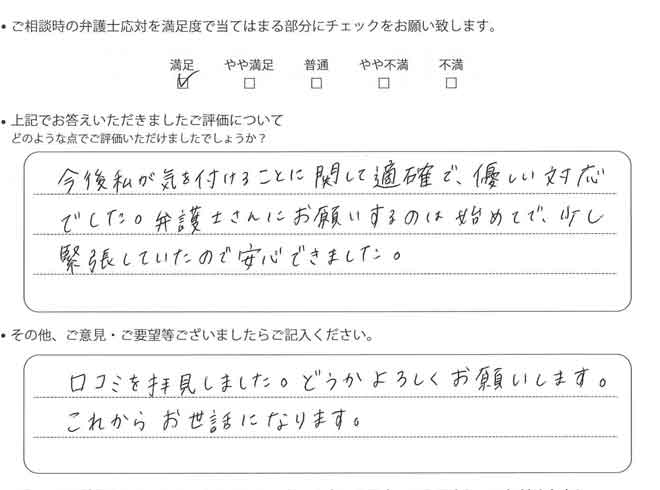 ・ご相談時の弁護士応対を満足度で当てはまる部分にチェックをお願い致します。
満足 やや満足 普通 やや不満 不満
☑ □ □ □ □
・上記でお答えいただきましたご評価について
どのような点でご評価いただけましたでしょうか？
今後私が気を付けることに関して適確で、優しい対応
でした。弁護士さんにお願いするのは始めてで、少し
緊張していたので安心できました。
・その他、ご意見・ご要望等ございましたらご記入ください。
口コミを拝見しました。どうかよろしくお願いします。
これからお世話になります。